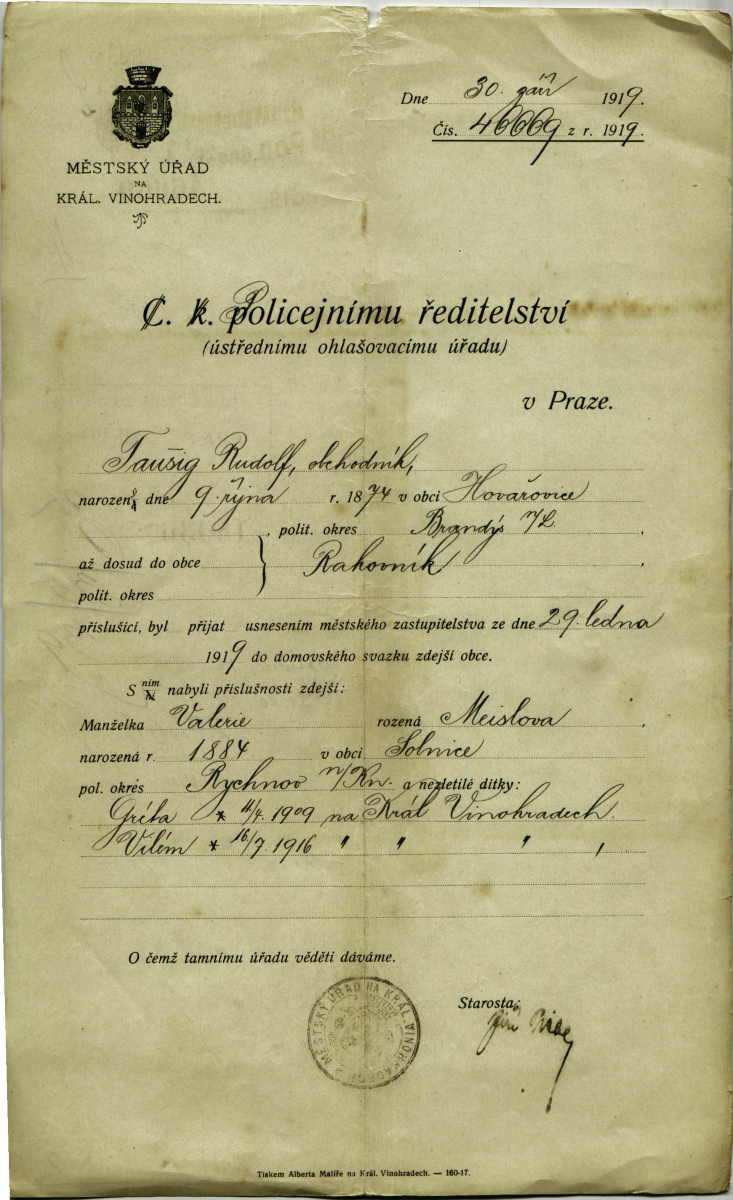 Dne 30. září 1919.
Čís. 46669 z r. 1919.
MĚSTSKÝ ÚŘAD
NA
KRÁL. VINOHRADECH.
C. k. Policejnímu ředitelství
(ústřednímu ohlašovacímu úřadu)
v Praze.
Taussig Rudolf, obchodník,
narozen dne 9. října r. 1874 v obci Hovařovice
, polit. okres Brandýs n/L.
až dosud do obce Rakovník
polit. okres
příslušící, byl přijat usnesením městského zastupitelstva ze dne 29. ledna
1919 do domovského svazku zdejší obce.
S ním nabyli příslušnosti zdejší:
Manželka Valerie rozená Meislova
narozená r. 1884 v obci Solnice
pol. okres Rychnov n/Kn. a nezletilé dítky:
Gréta * 11/4. 1909 na Král Vinohradech.
Vilém * 16/7. 1916 " " " "
O čemž tamnímu úřadu věděti dáváme.
Starosta:
MĚSTSKÝ ÚŘAD NA KRÁL. VINOHRADECH
Tiskem Alberta Malíře na Král. Vinohradech. — 160-17.